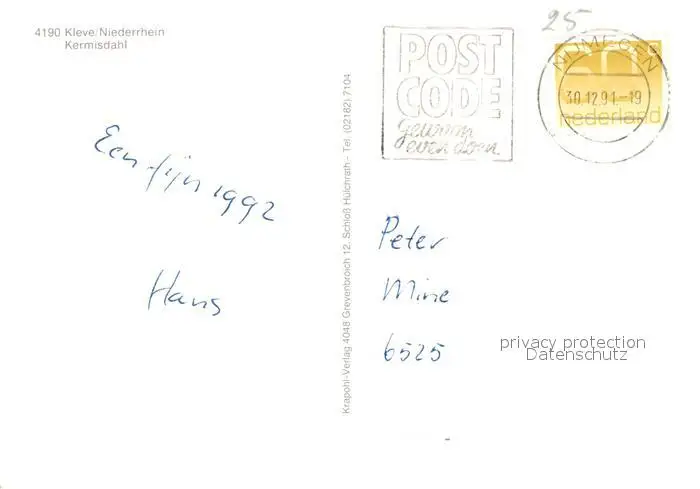 4190 Kleve/Niederrhein
Kermisdahl
25
POST
CODE
Gewoon
even doen.
NIJMEGEN
30.12.91.-19
60
nederland
Een fijn 1992
Hans
Krapohl-Verlag 4048 Grevenbroich 12, Schloß Hülchrath - Tel. (02182) 7104
Peter
Mine
6525
privacy protection
Datenschutz